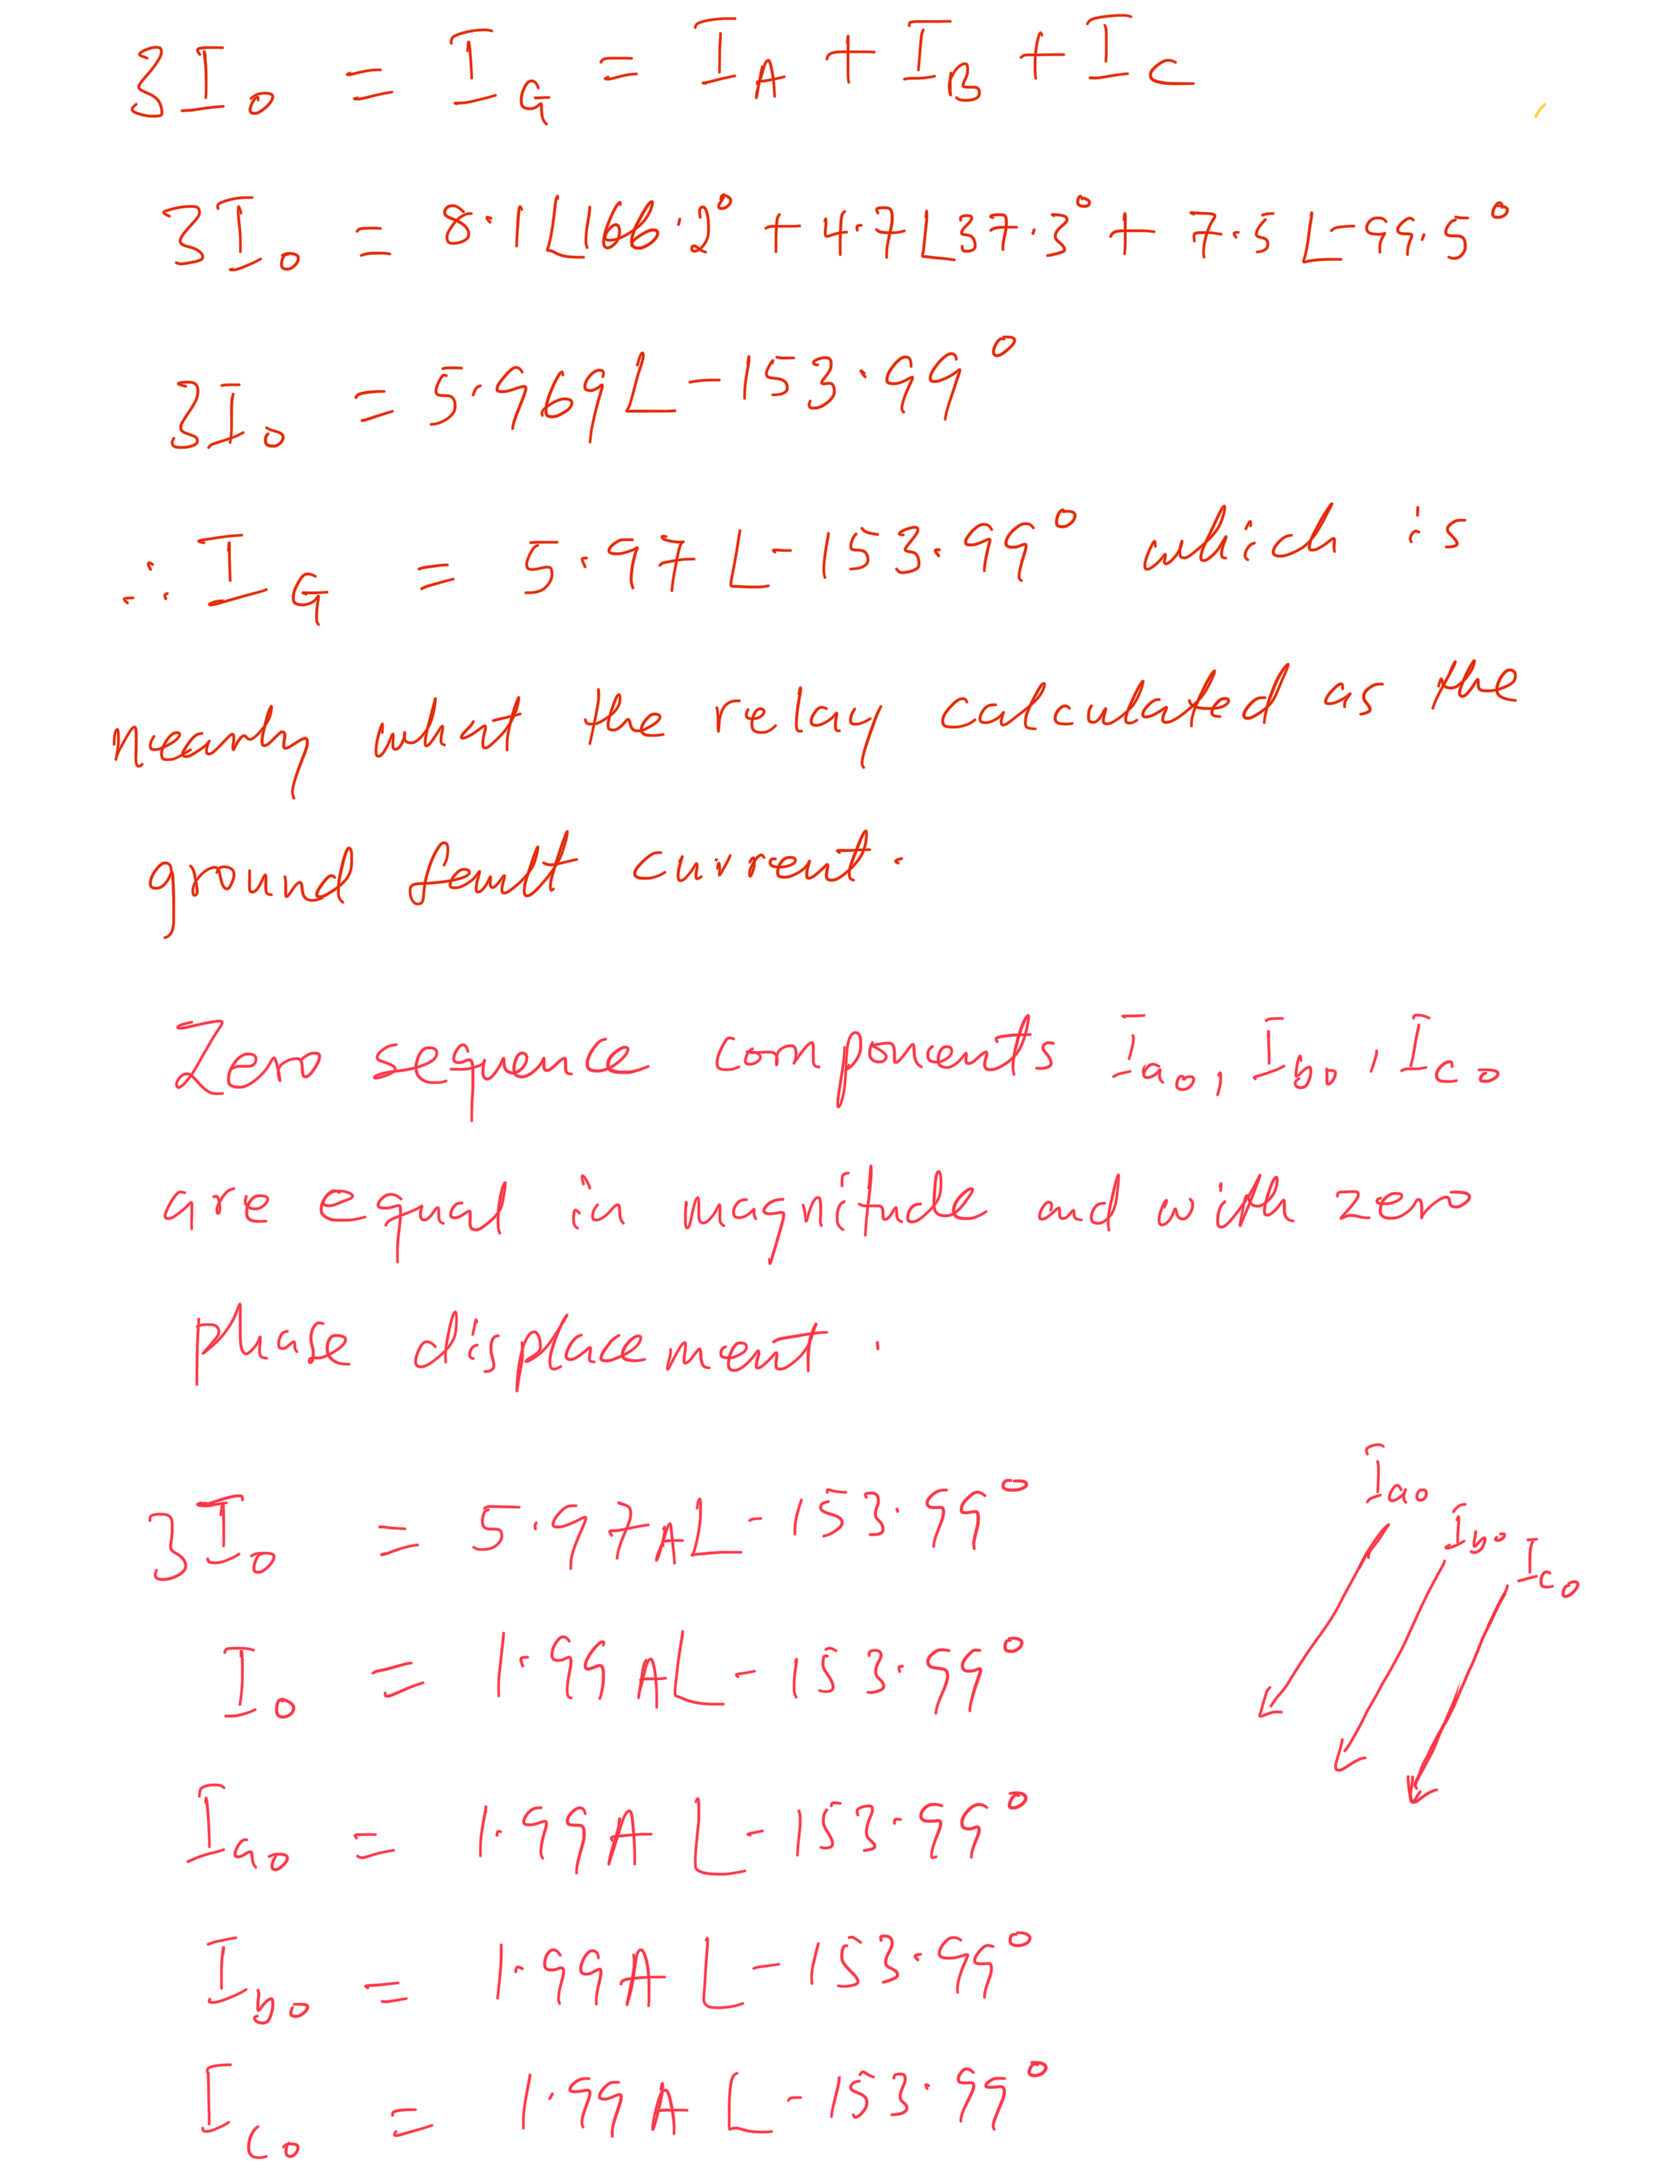 3I₀ = I_G = I_A + I_B + I_C
3I₀ = 8.1∠166.2° + 4.7∠37.3° + 7.5∠-99.5°
3I₀ = 5.969∠-153.99°
∴ I_G = 5.97∠-153.99° which is
nearly what the relay calculated as the
ground fault current.
Zero sequence components I_a0, I_b0, I_c0
are equal in magnitude and with zero
phase displacement.
I_a0
I_b0
I_c0
3I₀ = 5.97A∠-153.99°
I₀ = 1.99A∠-153.99°
I_a0 = 1.99A∠-153.99°
I_b0 = 1.99A∠-153.99°
I_c0 = 1.99A∠-153.99°